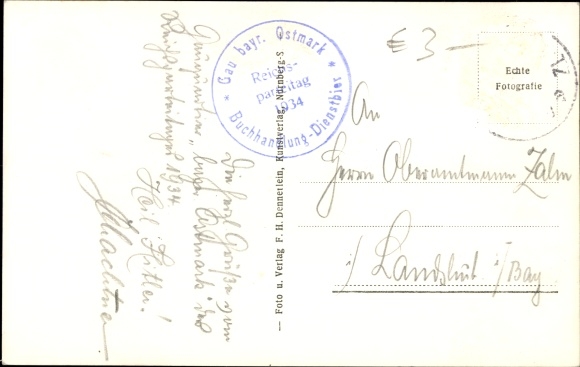 Die best Grüße vom
"bayr. Ostmark" des
Reichsparteitages 1934
Heil Hitler!
Gau bayr. Ostmark
Reichs-
parteitag
1934
Buchhandlung-Dienstbier
— Foto u. Verlag F. H. Dennerlein, Kunstverlag, Nürnberg-S
€ 3 —
Echte
Fotografie
An
Herrn Oberamtmann Zahn
i/ Landshut i/Bay